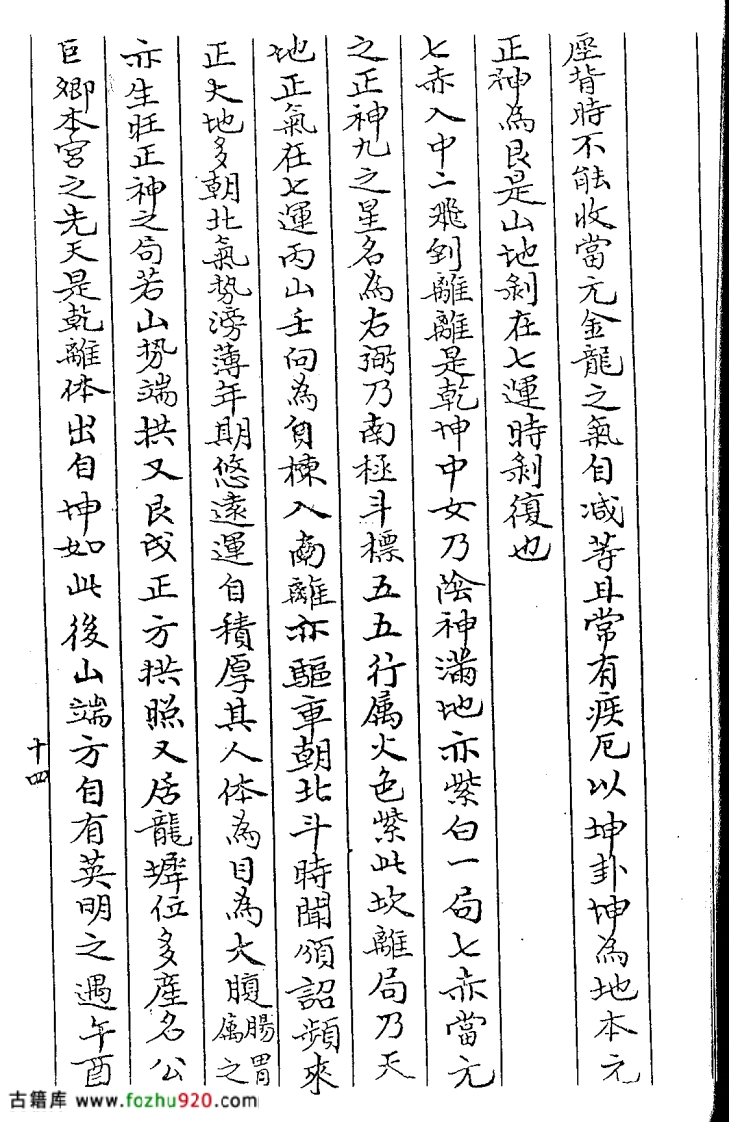 歷背時不能收當元金龍之氣自减等且常有疾厄以坤卦坤為地本元
正神為艮是山地剝在七運時剝復也
七赤入中二飛到離離是乾坤中女乃陰神滿地亦紫白一局七赤當元
之正神九之星名為右弼乃南極斗標五五行属火色紫此坎離局乃天
地正氣在七運丙山壬向為負棟入南離亦驅車朝北斗時聞頒詔頻來
正大地多朝北氣势滂薄年期悠遠運自積厚其人体為目為大腹腸胃属之
亦生旺正神之局若山势端拱又艮成正方拱照又居龍墀位多產名公
巨卿本宮之先天是乾離体出自坤如此後山端方自有英明之遇午酉
十四
古籍库 www.fozhu920.com